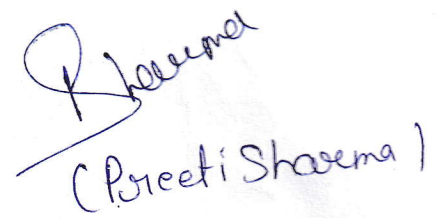 Sharma
(Preeti Sharma)